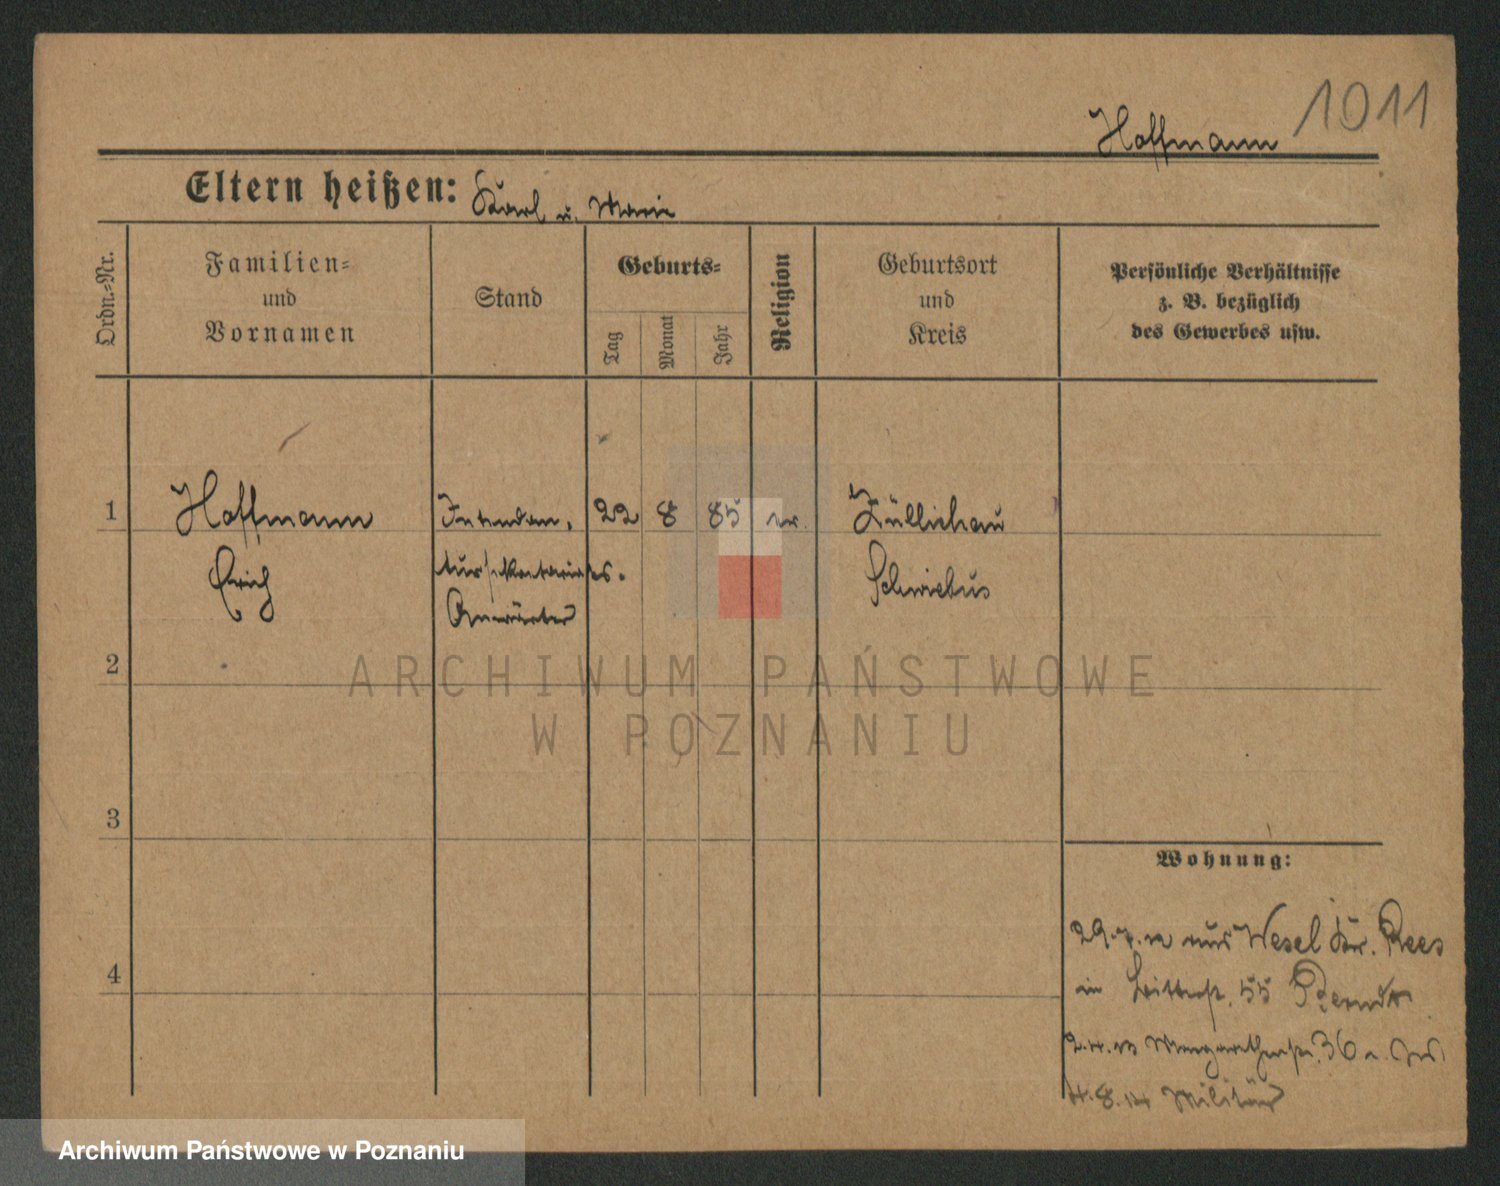 1011
Hoffmann
Eltern heißen: Karl u. Marie
Ordn.-Nr.
Familien-
und
Vornamen
Stand
Geburts-
Tag
Monat
Jahr
Religion
Geburtsort
und
Kreis
Persönliche Verhältnisse
z. B. bezüglich
des Gewerbes usw.
1 Hoffmann Intendan- 22 8 85 ev. Züllichau
Erich tursekretariats- Schwiebus
Anwärter
2
ARCHIWUM PAŃSTWOWE
W POZNANIU
3
Wohnung:
29.7.12 aus Wesel Kr. Rees
4
in 55
2.4.13 Margarethenstr. 36
4.8.14 Militär
Archiwum Państwowe w Poznaniu